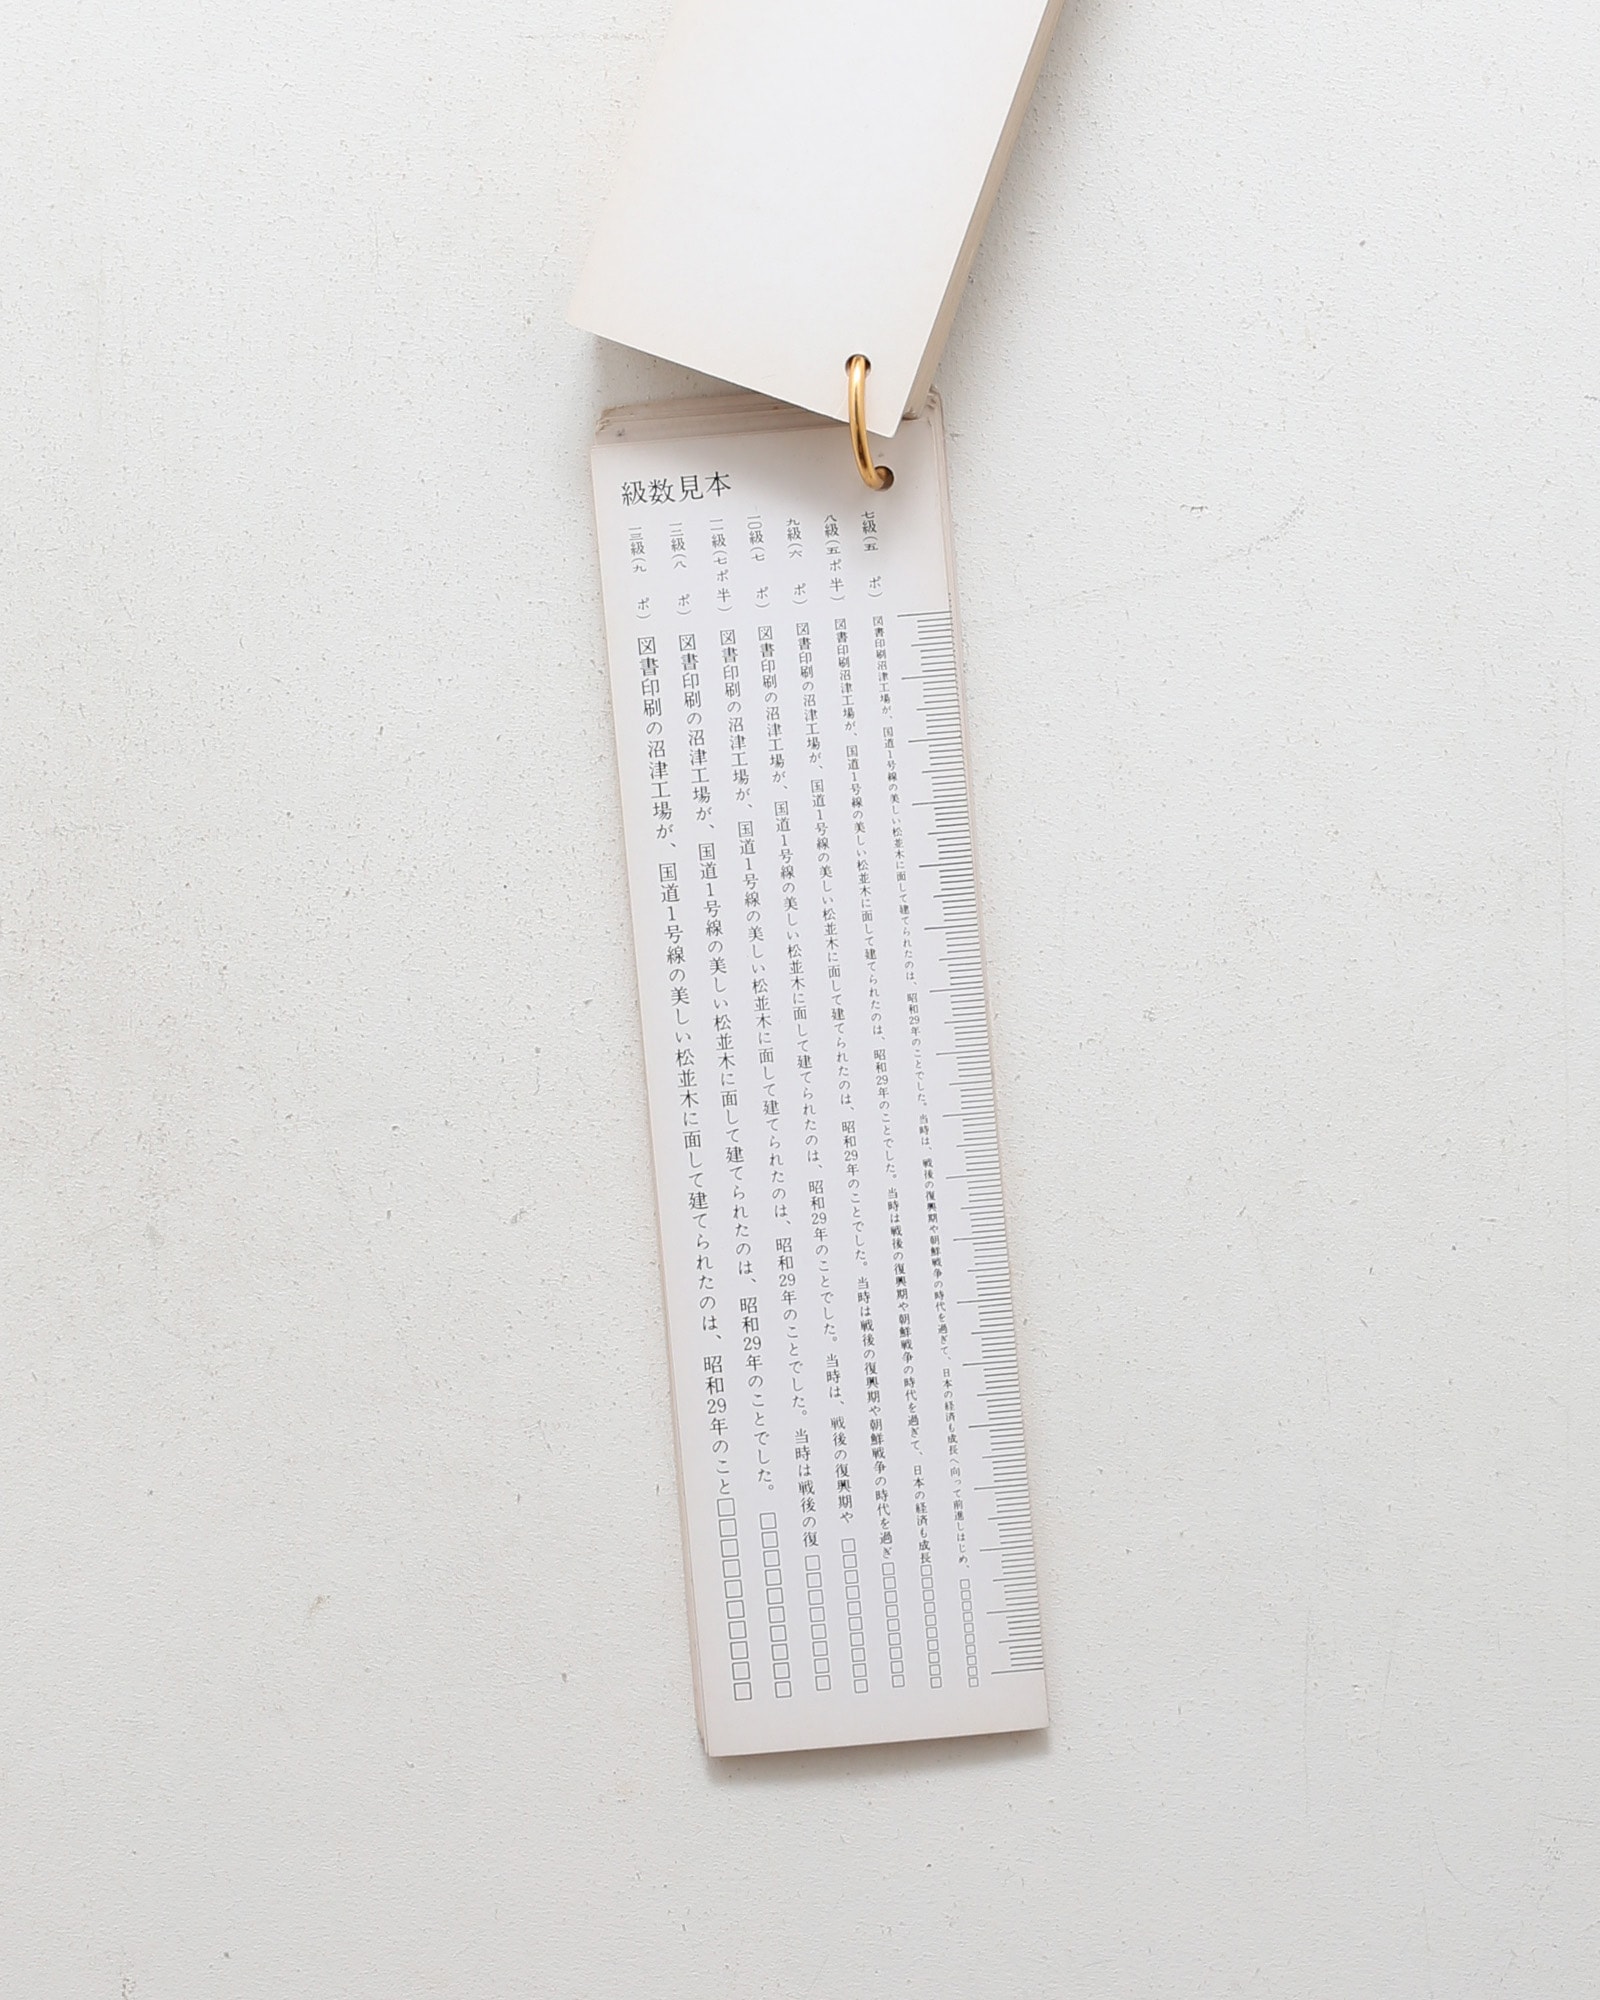 級数見本
七級(五 ポ) 図書印刷沼津工場が、国道1号線の美しい松並木に面して建てられたのは、昭和29年のことでした。当時は、戦後の復興期や朝鮮戦争の時代を過ぎて、日本の経済も成長へ向って前進しはじめ、□□□□□□□□□□
八級(五ポ半) 図書印刷沼津工場が、国道1号線の美しい松並木に面して建てられたのは、昭和29年のことでした。当時は戦後の復興期や朝鮮戦争の時代を過ぎて、日本の経済も成長□□□□□□□□□□
九級(六 ポ) 図書印刷の沼津工場が、国道1号線の美しい松並木に面して建てられたのは、昭和29年のことでした。当時は戦後の復興期や朝鮮戦争の時代を過ぎ□□□□□□□□□□
一〇級(七 ポ) 図書印刷の沼津工場が、国道1号線の美しい松並木に面して建てられたのは、昭和29年のことでした。当時は、戦後の復興期や□□□□□□□□□□
一一級(七ポ半) 図書印刷の沼津工場が、国道1号線の美しい松並木に面して建てられたのは、昭和29年のことでした。当時は戦後の復□□□□□□□□□□
一二級(八 ポ) 図書印刷の沼津工場が、国道1号線の美しい松並木に面して建てられたのは、昭和29年のことでした。□□□□□□□□□□
一三級(九 ポ) 図書印刷の沼津工場が、国道1号線の美しい松並木に面して建てられたのは、昭和29年のこと□□□□□□□□□□